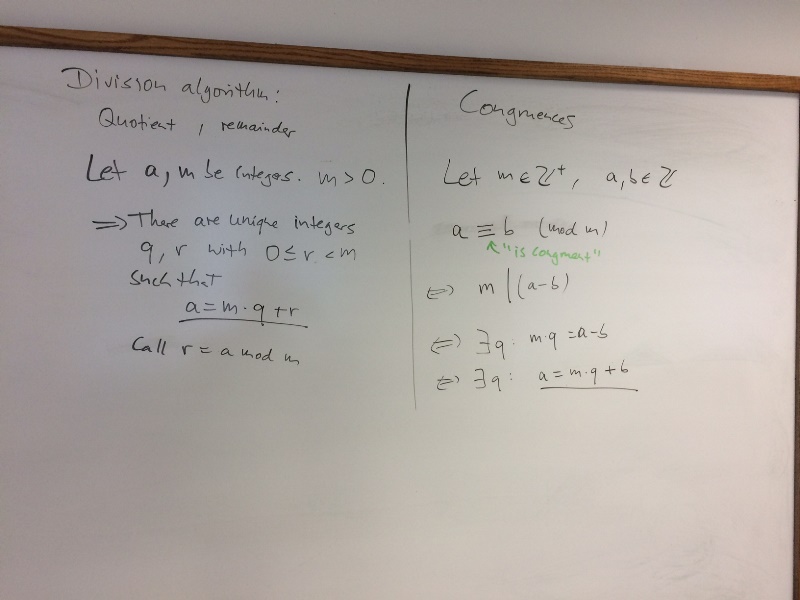 Division algorithm:
Quotient, remainder
Let a, m be integers. m > 0.
⇒ There are unique integers
q, r with 0 ≤ r < m
such that
a = m · q + r
Call r = a mod m
Congruences
Let m ∈ ℤ⁺, a, b ∈ ℤ
a ≡ b (mod m)
↖ "is congruent"
⇔ m | (a-b)
⇔ ∃q: m·q = a-b
⇔ ∃q: a = m·q + b